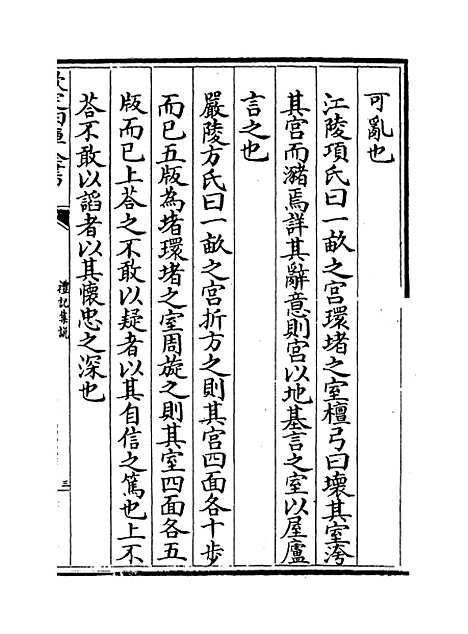 可亂也
江陵項氏曰一畝之宫環堵之室檀弓曰壞其室洿
其宫而瀦焉詳其辭意則宫以地基言之室以屋廬
言之也
嚴陵方氏曰一畝之宫折方之則其宫四面各十歩
而已五版為堵環堵之室周旋之則其室四面各五
版而已上荅之不敢以疑者以其自信之篤也上不
荅不敢以謟者以其懐忠之深也
欽定四庫全書
禮記集説
三